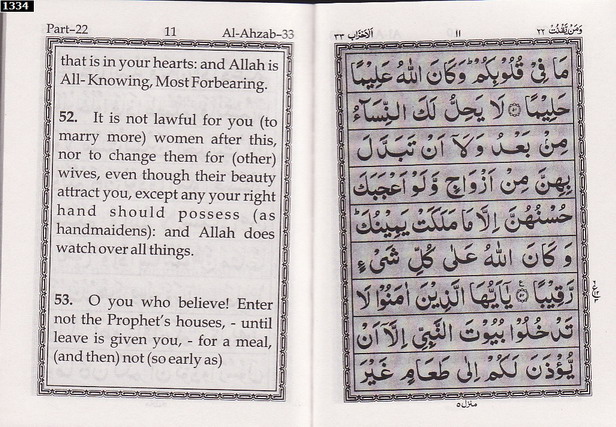 1334
Part–22 11 Al-Ahzab–33
that is in your hearts: and Allah is
All-Knowing, Most Forbearing.
52. It is not lawful for you (to
marry more) women after this,
nor to change them for (other)
wives, even though their beauty
attract you, except any your right
hand should possess (as
handmaidens): and Allah does
watch over all things.
53. O you who believe! Enter
not the Prophet's houses, - until
leave is given you, - for a meal,
(and then) not (so early as)
وَمَنْ يَّقْنُتْ ٢٢ ١١ اَلْاَحْزَاب ٣٣
مَا فِيْ قُلُوْبِكُمْ ؕ وَكَانَ اللّٰهُ عَلِيْمًا
حَلِيْمًا ۝٥١ لَا يَحِلُّ لَكَ النِّسَآءُ
مِنْۢ بَعْدُ وَلَاۤ اَنْ تَبَدَّلَ
بِهِنَّ مِنْ اَزْوَاجٍ وَّلَوْ اَعْجَبَكَ
حُسْنُهُنَّ اِلَّا مَا مَلَكَتْ يَمِيْنُكَ ؕ
وَكَانَ اللّٰهُ عَلٰى كُلِّ شَيْءٍ
رَّقِيْبًا ۝٥٢ يٰۤاَيُّهَا الَّذِيْنَ اٰمَنُوْا لَا
تَدْخُلُوْا بُيُوْتَ النَّبِيِّ اِلَّاۤ اَنْ
يُّؤْذَنَ لَكُمْ اِلٰى طَعَامٍ غَيْرَ
منزل ٥